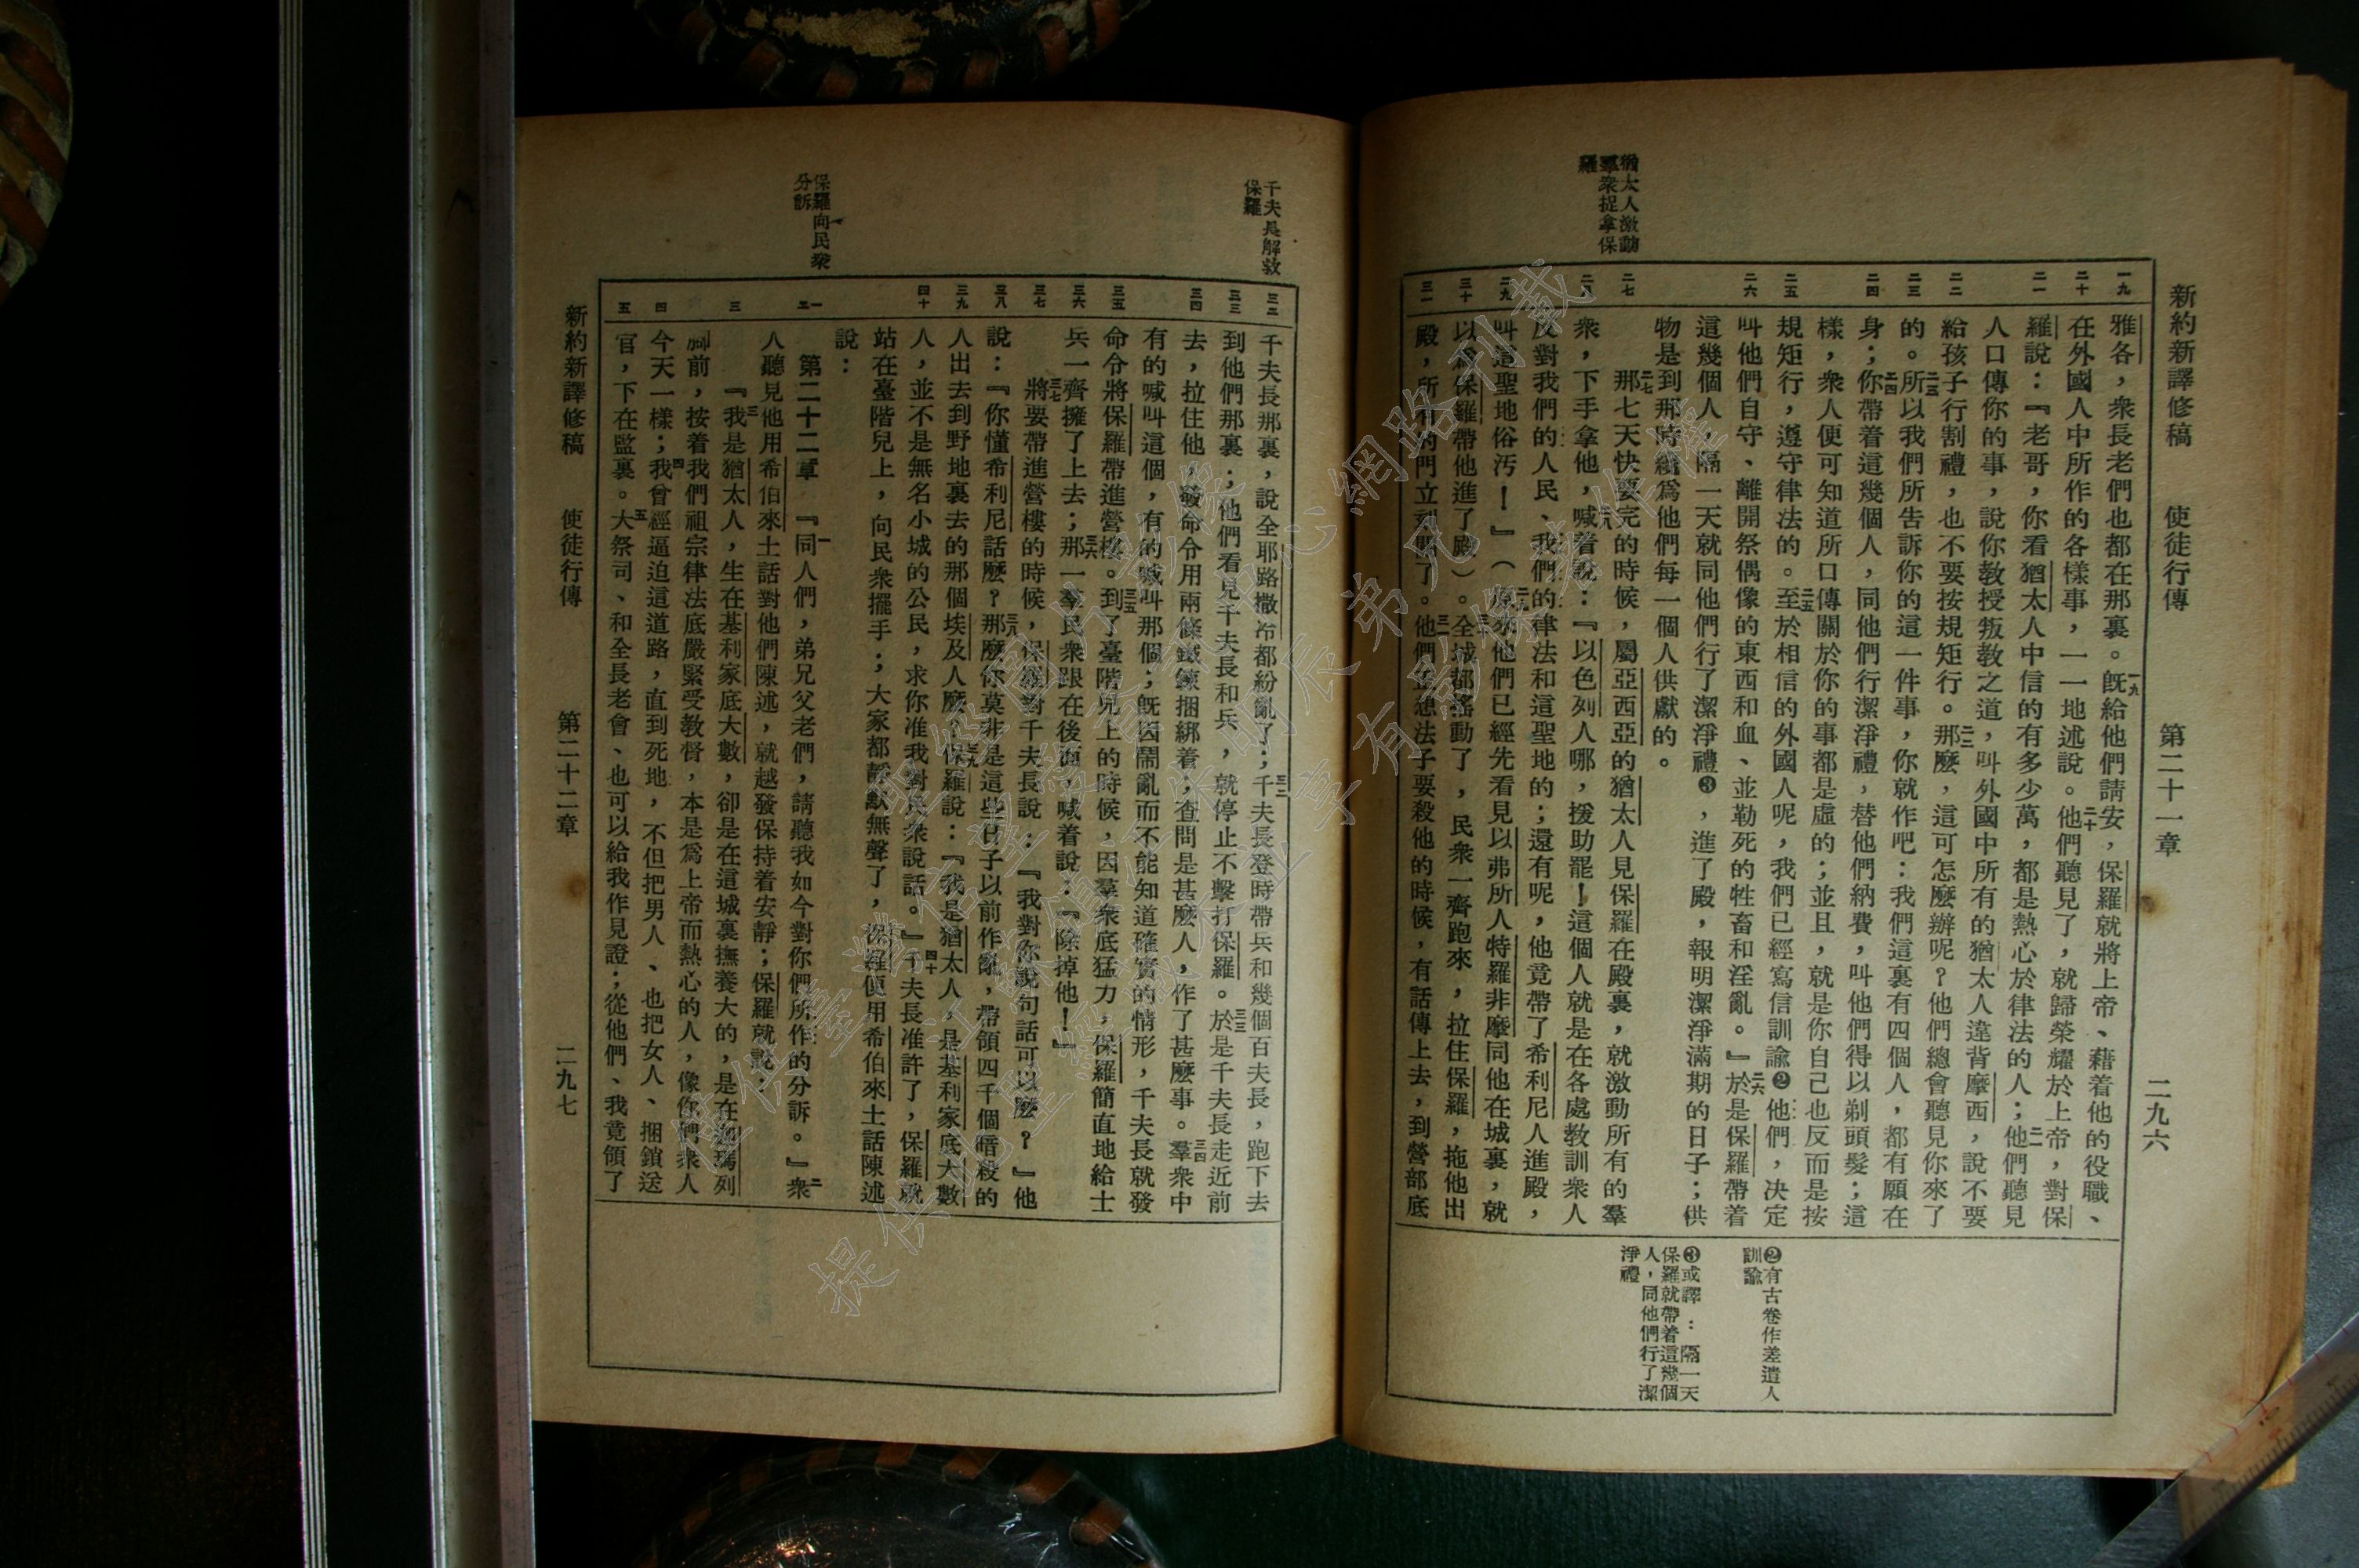 新約新譯修稿　使徒行傳　第二十一章　二九六
猶太人激動
羣衆捉拿保
羅
一九
二十
二一
二二
二三
二四
二五
二六
二七
二八
二九
三十
三一
雅各，衆長老們也都在那裏。一九旣給他們請安，保羅就將上帝、藉着他的役職、
在外國人中所作的各樣事，一一地述說。二十他們聽見了，就歸榮耀於上帝，對保
羅說：『老哥，你看猶太人中信的有多少萬，都是熱心於律法的人；二一他們聽見
人口傳你的事，說你教授叛教之道，叫外國中所有的猶太人違背摩西，說不要
給孩子行割禮，也不要按規矩行。二二那麼，這可怎麼辦呢？他們總會聽見你來了
的。二三所以我們所告訴你的這一件事，你就作吧：我們這裏有四個人，都有願在
身；二四你帶着這幾個人，同他們行潔淨禮，替他們納費，叫他們得以剃頭髮；這
樣，衆人便可知道所口傳關於你的事都是虛的；並且，就是你自己也反而是按
規矩行，遵守律法的。二五至於相信的外國人呢，我們已經寫信訓諭❷他們，決定
叫他們自守、離開祭偶像的東西和血、並勒死的牲畜和淫亂。』二六於是保羅帶着
這幾個人，隔一天就同他們行了潔淨禮❸，進了殿，報明潔淨滿期的日子；供
物是到那時纔爲他們每一個人供獻的。
二七那七天快要完的時候，屬亞西亞的猶太人見保羅在殿裏，就激動所有的羣
衆，下手拿他，二八喊着說：『以色列人哪，援助罷！這個人就是在各處教訓衆人
反對我們的人民、我們的律法和這聖地的；還有呢，他竟帶了希利尼人進殿，
叫這聖地俗污！』（二九原來他們已經先看見以弗所人特羅非摩同他在城裏，就
以爲保羅帶他進了殿）。三十全城都搖動了，民衆一齊跑來，拉住保羅，拖他出
殿，所有的門立刻關了。三一他們正想法子要殺他的時候，有話傳上去，到營部底
❷有古卷作差遣人
訓諭
❸或譯：隔一天
保羅就帶着這幾個
人，同他們行了潔
淨禮
千夫長解救
保羅
保羅向民衆
分訴
三二
三三
三四
三五
三六
三七
三八
三九
四十
一
二
三
四
五
千夫長那裏，說全耶路撒冷都紛亂了；三二千夫長登時帶兵和幾個百夫長，跑下去
到他們那裏；他們看見千夫長和兵，就停止不擊打保羅。三三於是千夫長走近前
去，拉住他，發命令用兩條鐵鍊捆綁着；查問是甚麼人，作了甚麼事。三四羣衆中
有的喊叫這個，有的喊叫那個；旣因鬧亂而不能知道確實的情形，千夫長就發
命令將保羅帶進營樓。三五到了臺階兒上的時候，因羣衆底猛力，保羅簡直地給士
兵一齊擁了上去；三六那一羣民衆跟在後面，喊着說：『除掉他！』
三七將要帶進營樓的時候，保羅對千夫長說：『我對你說句話可以麼？』他
說：『你懂希利尼話麼？三八那麼你莫非是這些日子以前作亂，帶領四千個暗殺的
人出去到野地裏去的那個埃及人麼？』三九保羅說：『我是猶太人，是基利家底大數
人，並不是無名小城的公民，求你准我對民衆說話。』四十千夫長准許了，保羅就
站在臺階兒上，向民衆擺手；大家都靜默無聲了，保羅便用希伯來土話陳述
說：
第二十二章　一『同人們，弟兄父老們，請聽我如今對你們所作的分訴。』二衆
人聽見他用希伯來土話對他們陳述，就越發保持着安靜；保羅就說：
三『我是猶太人，生在基利家底大數，卻是在這城裏撫養大的，是在迦瑪列
脚前，按着我們祖宗律法底嚴緊受教督，本是爲上帝而熱心的人，像你們衆人
今天一樣；四我曾經逼迫這道路，直到死地，不但把男人、也把女人、捆鎖送
官，下在監裏。五大祭司、和全長老會、也可以給我作見證；從他們、我竟領了
新約新譯修稿　使徒行傳　第二十二章　二九七